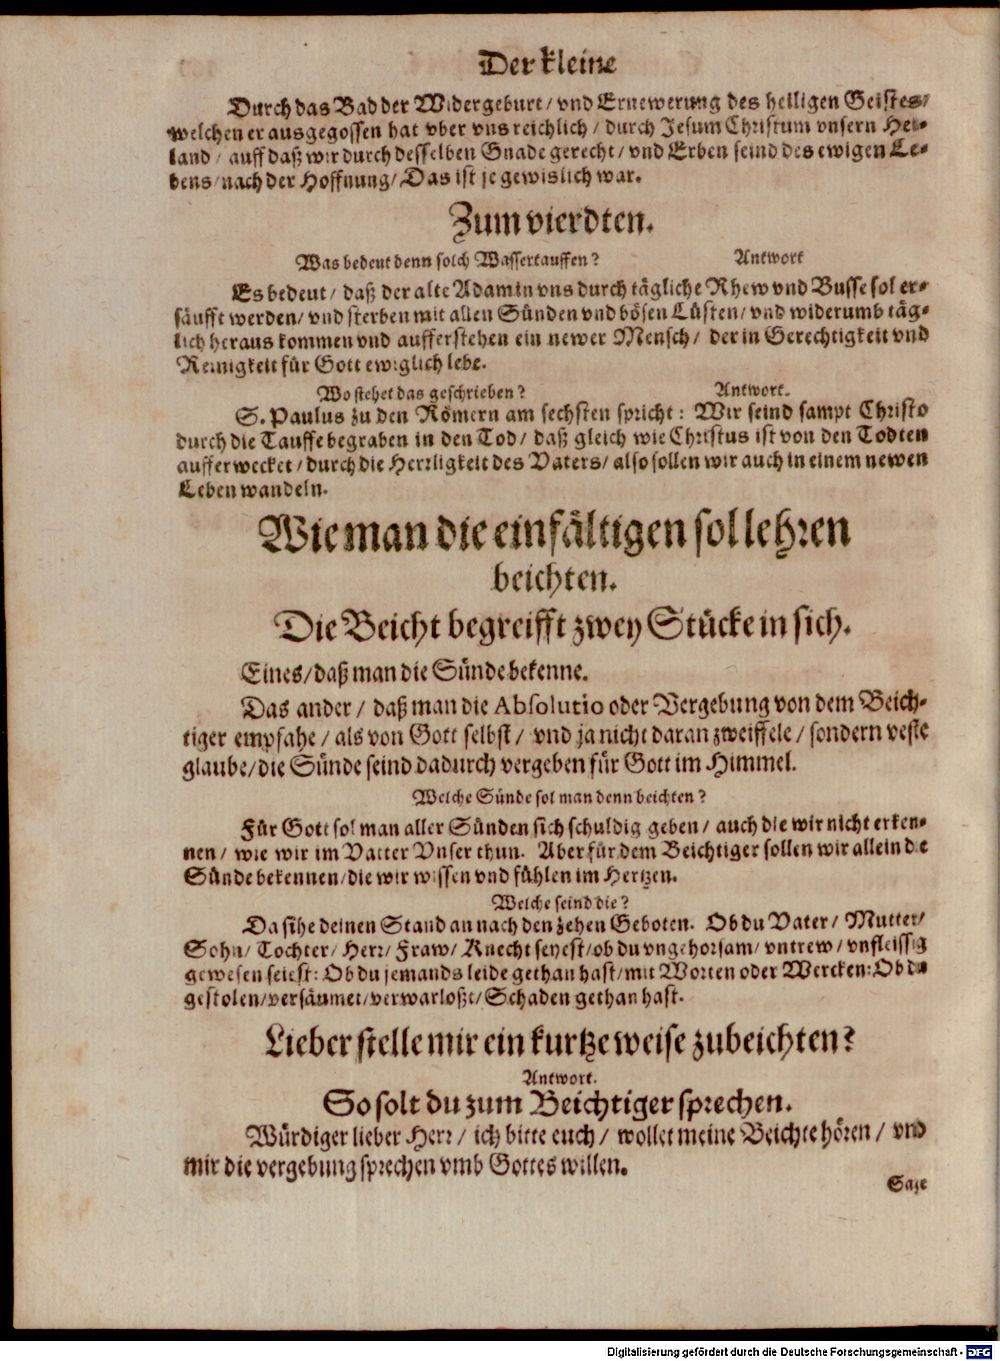 Der kleine
Durch das Bad der Widergeburt/ vnd Ernewerung des heiligen Geistes/
welchen er ausgegossen hat vber vns reichlich/ durch Jesum Christum vnsern Hei-
land/ auff daß wir durch desselben Gnade gerecht/ vnd Erben seind des ewigen Le-
bens/ nach der Hoffnung/ Das ist je gewislich war.
Zum vierdten.
Was bedeut denn solch Wassertauffen? Antwort
Es bedeut/ daß der alte Adam in vns durch tägliche Rhew vnd Busse sol er-
säufft werden/ vnd sterben mit allen Sünden vnd bösen Lüsten/ vnd widerumb täg-
lich heraus kommen vnd aufferstehen ein newer Mensch/ der in Gerechtigkeit vnd
Reinigkeit für Gott ewiglich lebe.
Wo stehet das geschrieben? Antwort.
S. Paulus zu den Römern am sechsten spricht: Wir seind sampt Christo
durch die Tauffe begraben in den Tod/ daß gleich wie Christus ist von den Todten
aufferwecket/ durch die Herrligkeit des Vaters/ also sollen wir auch in einem newen
Leben wandeln.
Wie man die einfältigen sol lehren
beichten.
Die Beicht begreifft zwey Stücke in sich.
Eines/ daß man die Sünde bekenne.
Das ander/ daß man die Absolutio oder Vergebung von dem Beich-
tiger empfahe/ als von Gott selbst/ vnd ja nicht daran zweiffele/ sondern veste
glaube/ die Sünde seind dadurch vergeben für Gott im Himmel.
Welche Sünde sol man denn beichten?
Für Gott sol man aller Sünden sich schuldig geben/ auch die wir nicht erken-
nen/ wie wir im Vatter Vnser thun. Aber für dem Beichtiger sollen wir allein die
Sünde bekennen/ die wir wissen vnd fühlen im Hertzen.
Welche seind die?
Da sihe deinen Stand an nach den zehen Geboten. Ob du Vater/ Mutter/
Sohn/ Tochter/ Herr/ Fraw/ Knecht seyest/ ob du vngehorsam/ vntrew/ vnfleissig
gewesen seiest: Ob du jemands leide gethan hast/ mit Worten oder Wercken: Ob du
gestolen/ versäumet/ verwarloßt/ Schaden gethan hast.
Lieber stelle mir ein kurtze weise zubeichten?
Antwort.
So solt du zum Beichtiger sprechen.
Würdiger lieber Herr/ ich bitte euch/ wollet meine Beichte hören/ vnd
mir die vergebung sprechen vmb Gottes willen.
Sage
Digitalisierung gefördert durch die Deutsche Forschungsgemeinschaft - DFG